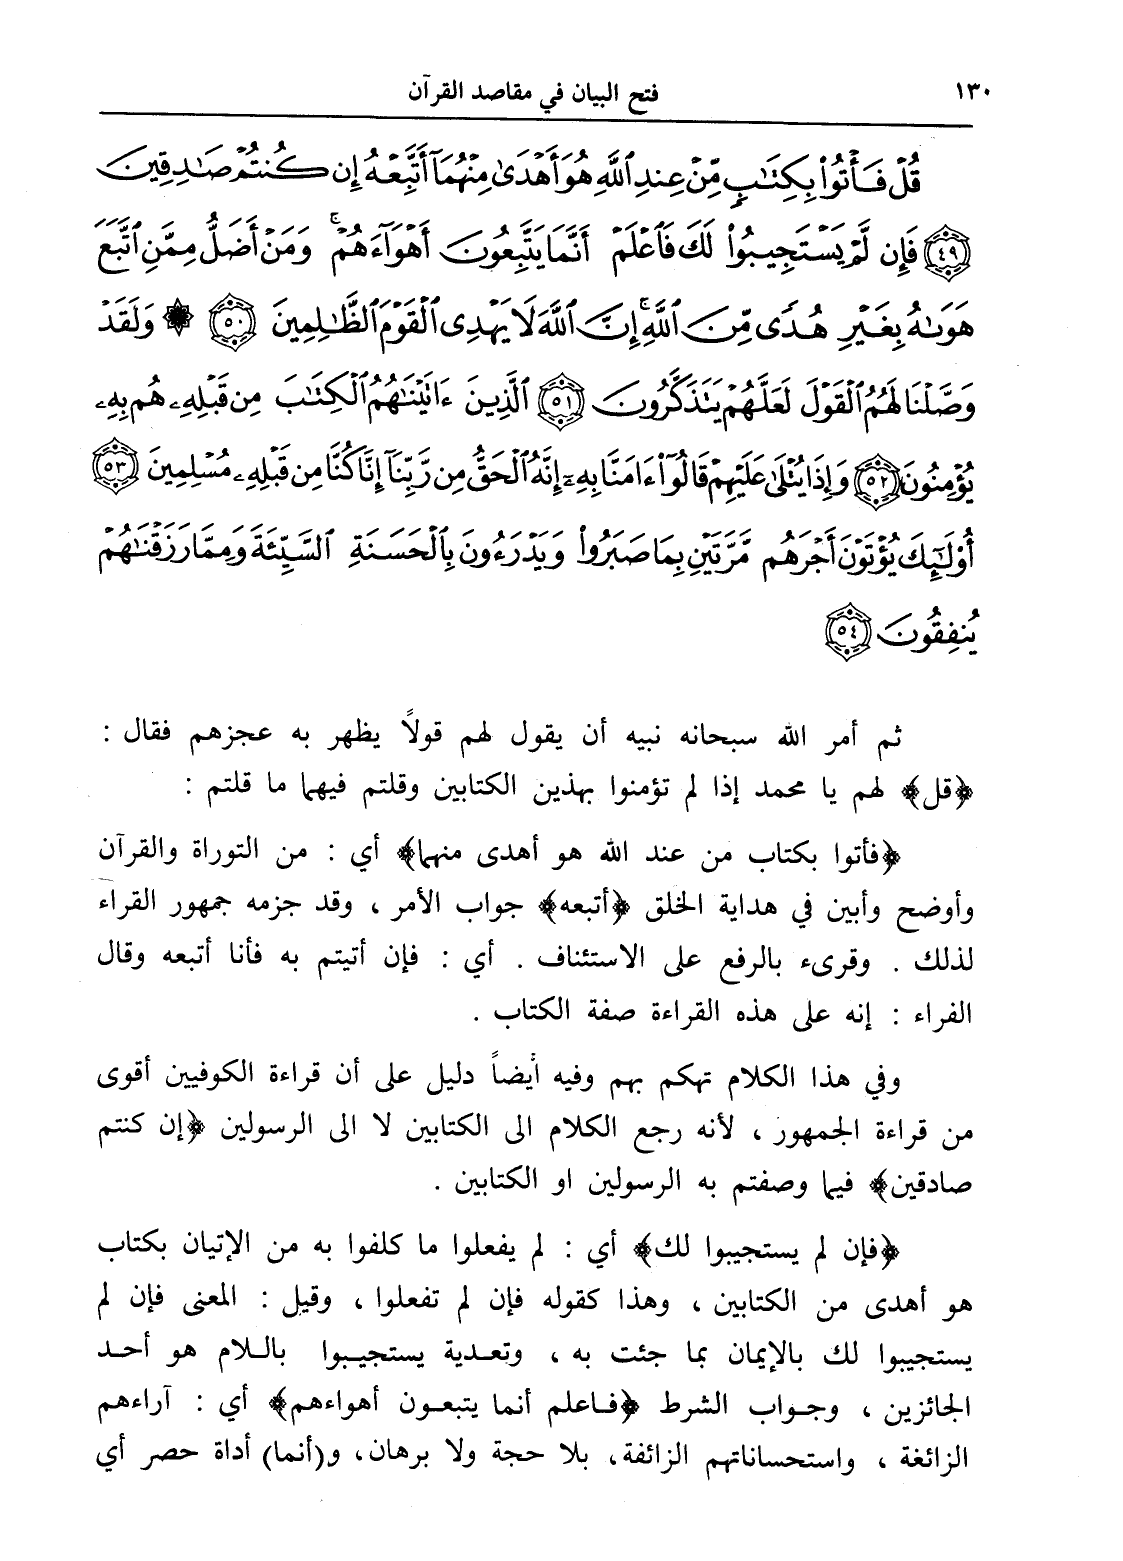 ١٣٠ فتح البيان في مقاصد القرآن
قُلْ فَأْتُوا۟ بِكِتَٰبٍ مِّنْ عِندِ ٱللَّهِ هُوَ أَهْدَىٰ مِنْهُمَآ أَتَّبِعْهُ إِن كُنتُمْ صَٰدِقِينَ
﴿٤٩﴾ فَإِن لَّمْ يَسْتَجِيبُوا۟ لَكَ فَٱعْلَمْ أَنَّمَا يَتَّبِعُونَ أَهْوَآءَهُمْ ۚ وَمَنْ أَضَلُّ مِمَّنِ ٱتَّبَعَ
هَوَىٰهُ بِغَيْرِ هُدًى مِّنَ ٱللَّهِ ۚ إِنَّ ٱللَّهَ لَا يَهْدِى ٱلْقَوْمَ ٱلظَّٰلِمِينَ ﴿٥٠﴾ ۞ وَلَقَدْ
وَصَّلْنَا لَهُمُ ٱلْقَوْلَ لَعَلَّهُمْ يَتَذَكَّرُونَ ﴿٥١﴾ ٱلَّذِينَ ءَاتَيْنَٰهُمُ ٱلْكِتَٰبَ مِن قَبْلِهِۦ هُم بِهِۦ
يُؤْمِنُونَ ﴿٥٢﴾ وَإِذَا يُتْلَىٰ عَلَيْهِمْ قَالُوٓا۟ ءَامَنَّا بِهِۦٓ إِنَّهُ ٱلْحَقُّ مِن رَّبِّنَآ إِنَّا كُنَّا مِن قَبْلِهِۦ مُسْلِمِينَ ﴿٥٣﴾
أُو۟لَٰٓئِكَ يُؤْتَوْنَ أَجْرَهُم مَّرَّتَيْنِ بِمَا صَبَرُوا۟ وَيَدْرَءُونَ بِٱلْحَسَنَةِ ٱلسَّيِّئَةَ وَمِمَّا رَزَقْنَٰهُمْ
يُنفِقُونَ ﴿٥٤﴾
ثم أمر الله سبحانه نبيه أن يقول لهم قولاً يظهر به عجزهم فقال :
﴿قل﴾ لهم يا محمد إذا لم تؤمنوا بهذين الكتابين وقلتم فيهما ما قلتم :
﴿فأتوا بكتاب من عند الله هو أهدى منهما﴾ أي : من التوراة والقرآن
وأوضح وأبين في هداية الخلق ﴿أتبعه﴾ جواب الأمر ، وقد جزمه جمهور القراء
لذلك . وقرىء بالرفع على الاستئناف . أي : فإن أتيتم به فأنا أتبعه وقال
الفراء : إنه على هذه القراءة صفة الكتاب .
وفي هذا الكلام تهكم بهم وفيه أيضاً دليل على أن قراءة الكوفيين أقوى
من قراءة الجمهور ، لأنه رجع الكلام الى الكتابين لا الى الرسولين ﴿إن كنتم
صادقين﴾ فيما وصفتم به الرسولين او الكتابين .
﴿فإن لم يستجيبوا لك﴾ أي : لم يفعلوا ما كلفوا به من الإتيان بكتاب
هو أهدى من الكتابين ، وهذا كقوله فإن لم تفعلوا ، وقيل : المعنى فإن لم
يستجيبوا لك بالإيمان بما جئت به ، وتعدية يستجيبوا باللام هو أحد
الجائزين ، وجواب الشرط ﴿فاعلم أنما يتبعون أهواءهم﴾ أي : آراءهم
الزائغة ، واستحساناتهم الزائفة، بلا حجة ولا برهان، و(أنما) أداة حصر أي